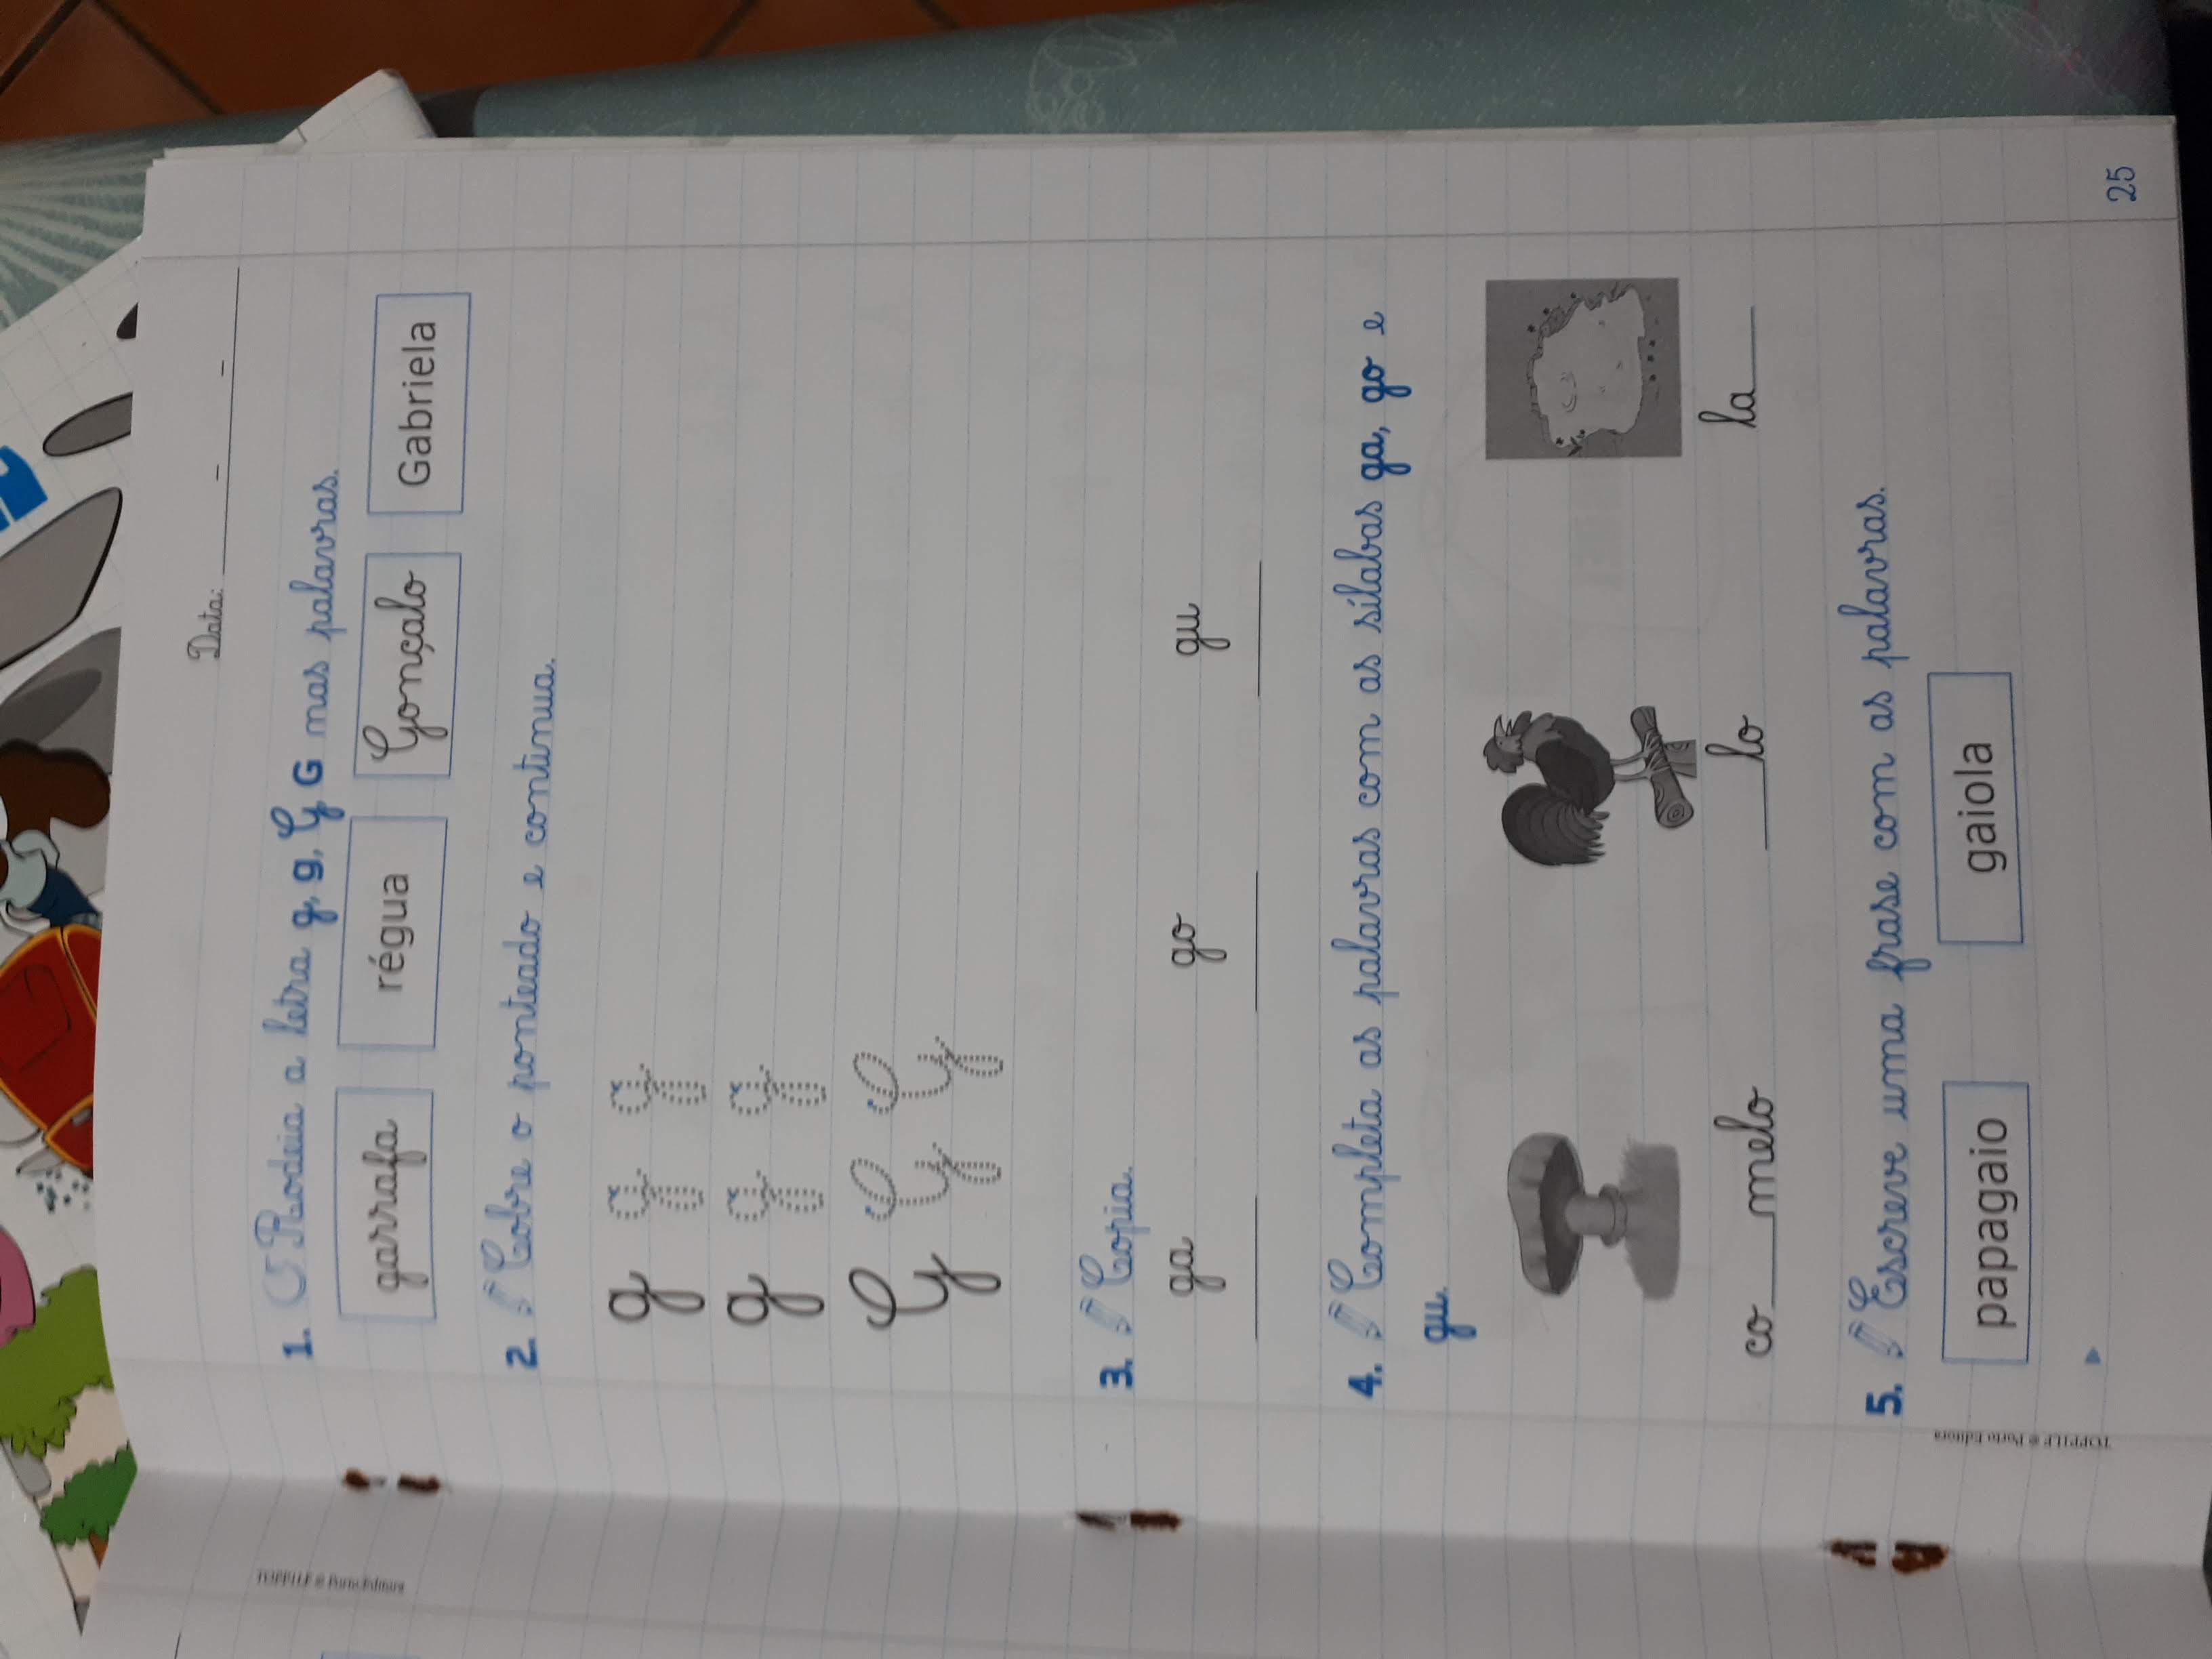 Data: ____ - ____ - ____
1. Rodeia a letra g, g, G, G nas palavras.
garrafa régua Gonçalo Gabriela
2. Cobre o ponteado e continua.
g g g
g g g
G G G
3. Copia.
ga go gu
4. Completa as palavras com as sílabas ga, go e
gu.
co____melo ____lo la____
5. Escreve uma frase com as palavras.
papagaio gaiola
TOPP1LF © Porto Editora
25
TOPP1LF © Porto Editora